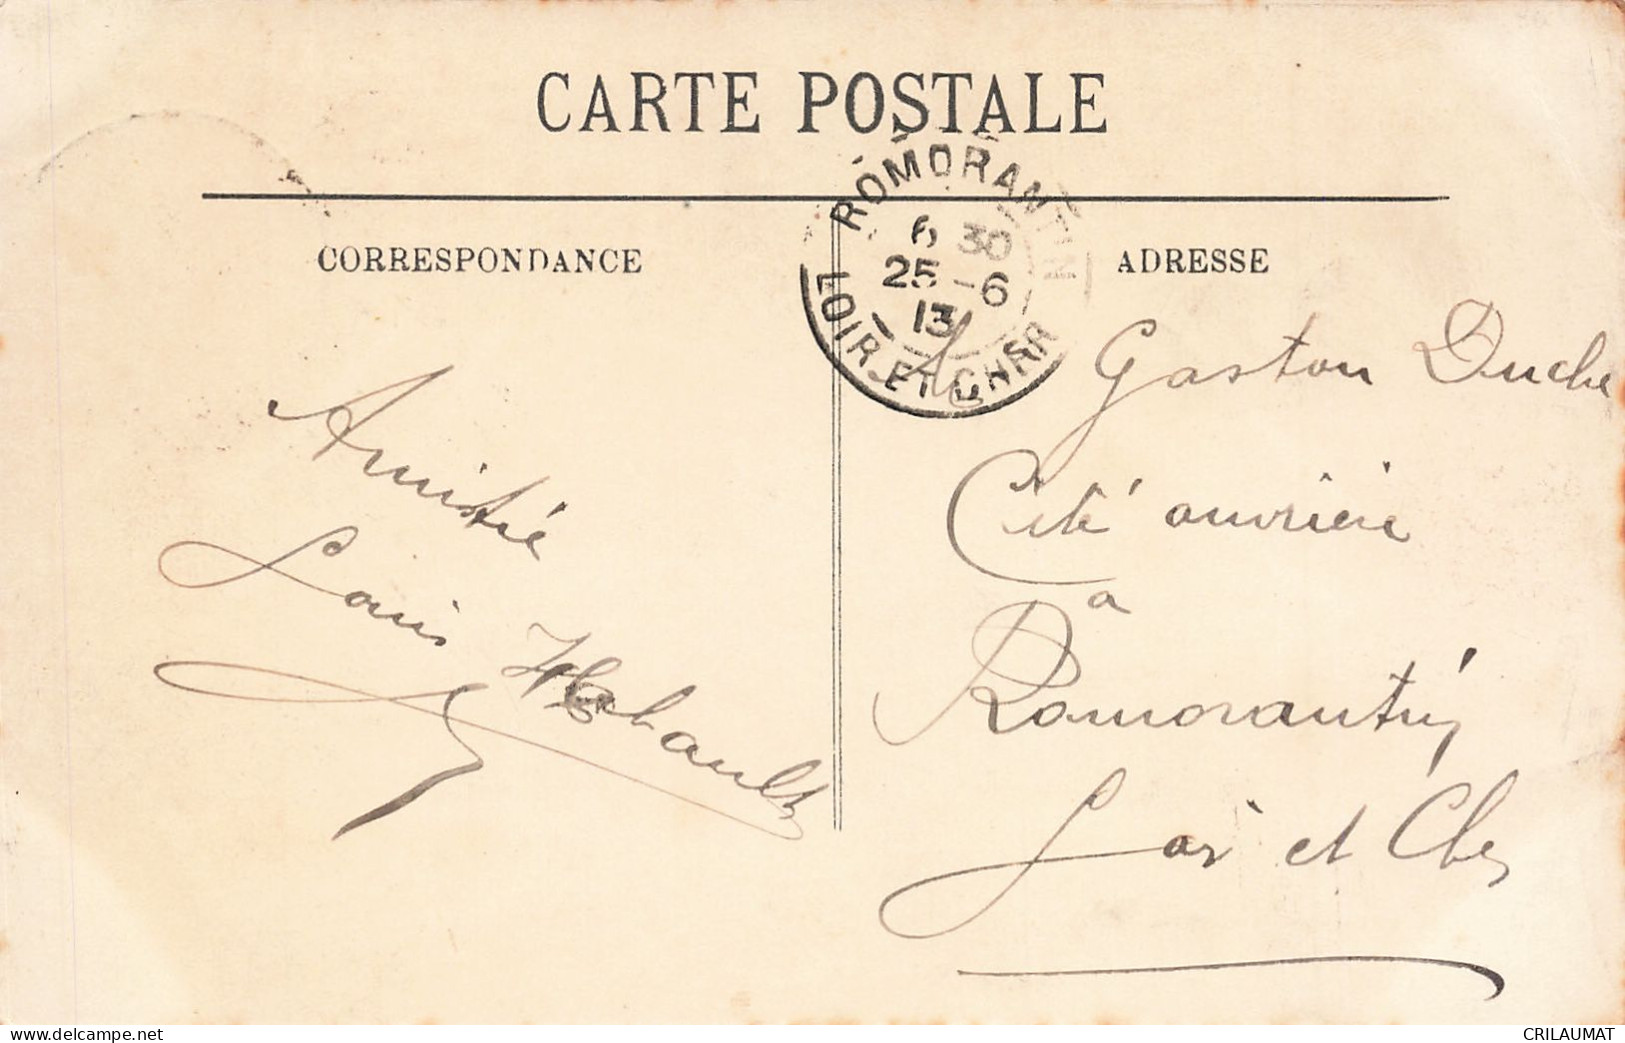 CARTE POSTALE
CORRESPONDANCE
ADRESSE
ROMORANTIN
6 30
25 - 6
13
LOIR-ET-CHER
Amitié
Louis
M
Gaston Duche
Cité ouvrière
a
Romorantin
Loir et Cher
www.delcampe.net
CRILAUMAT